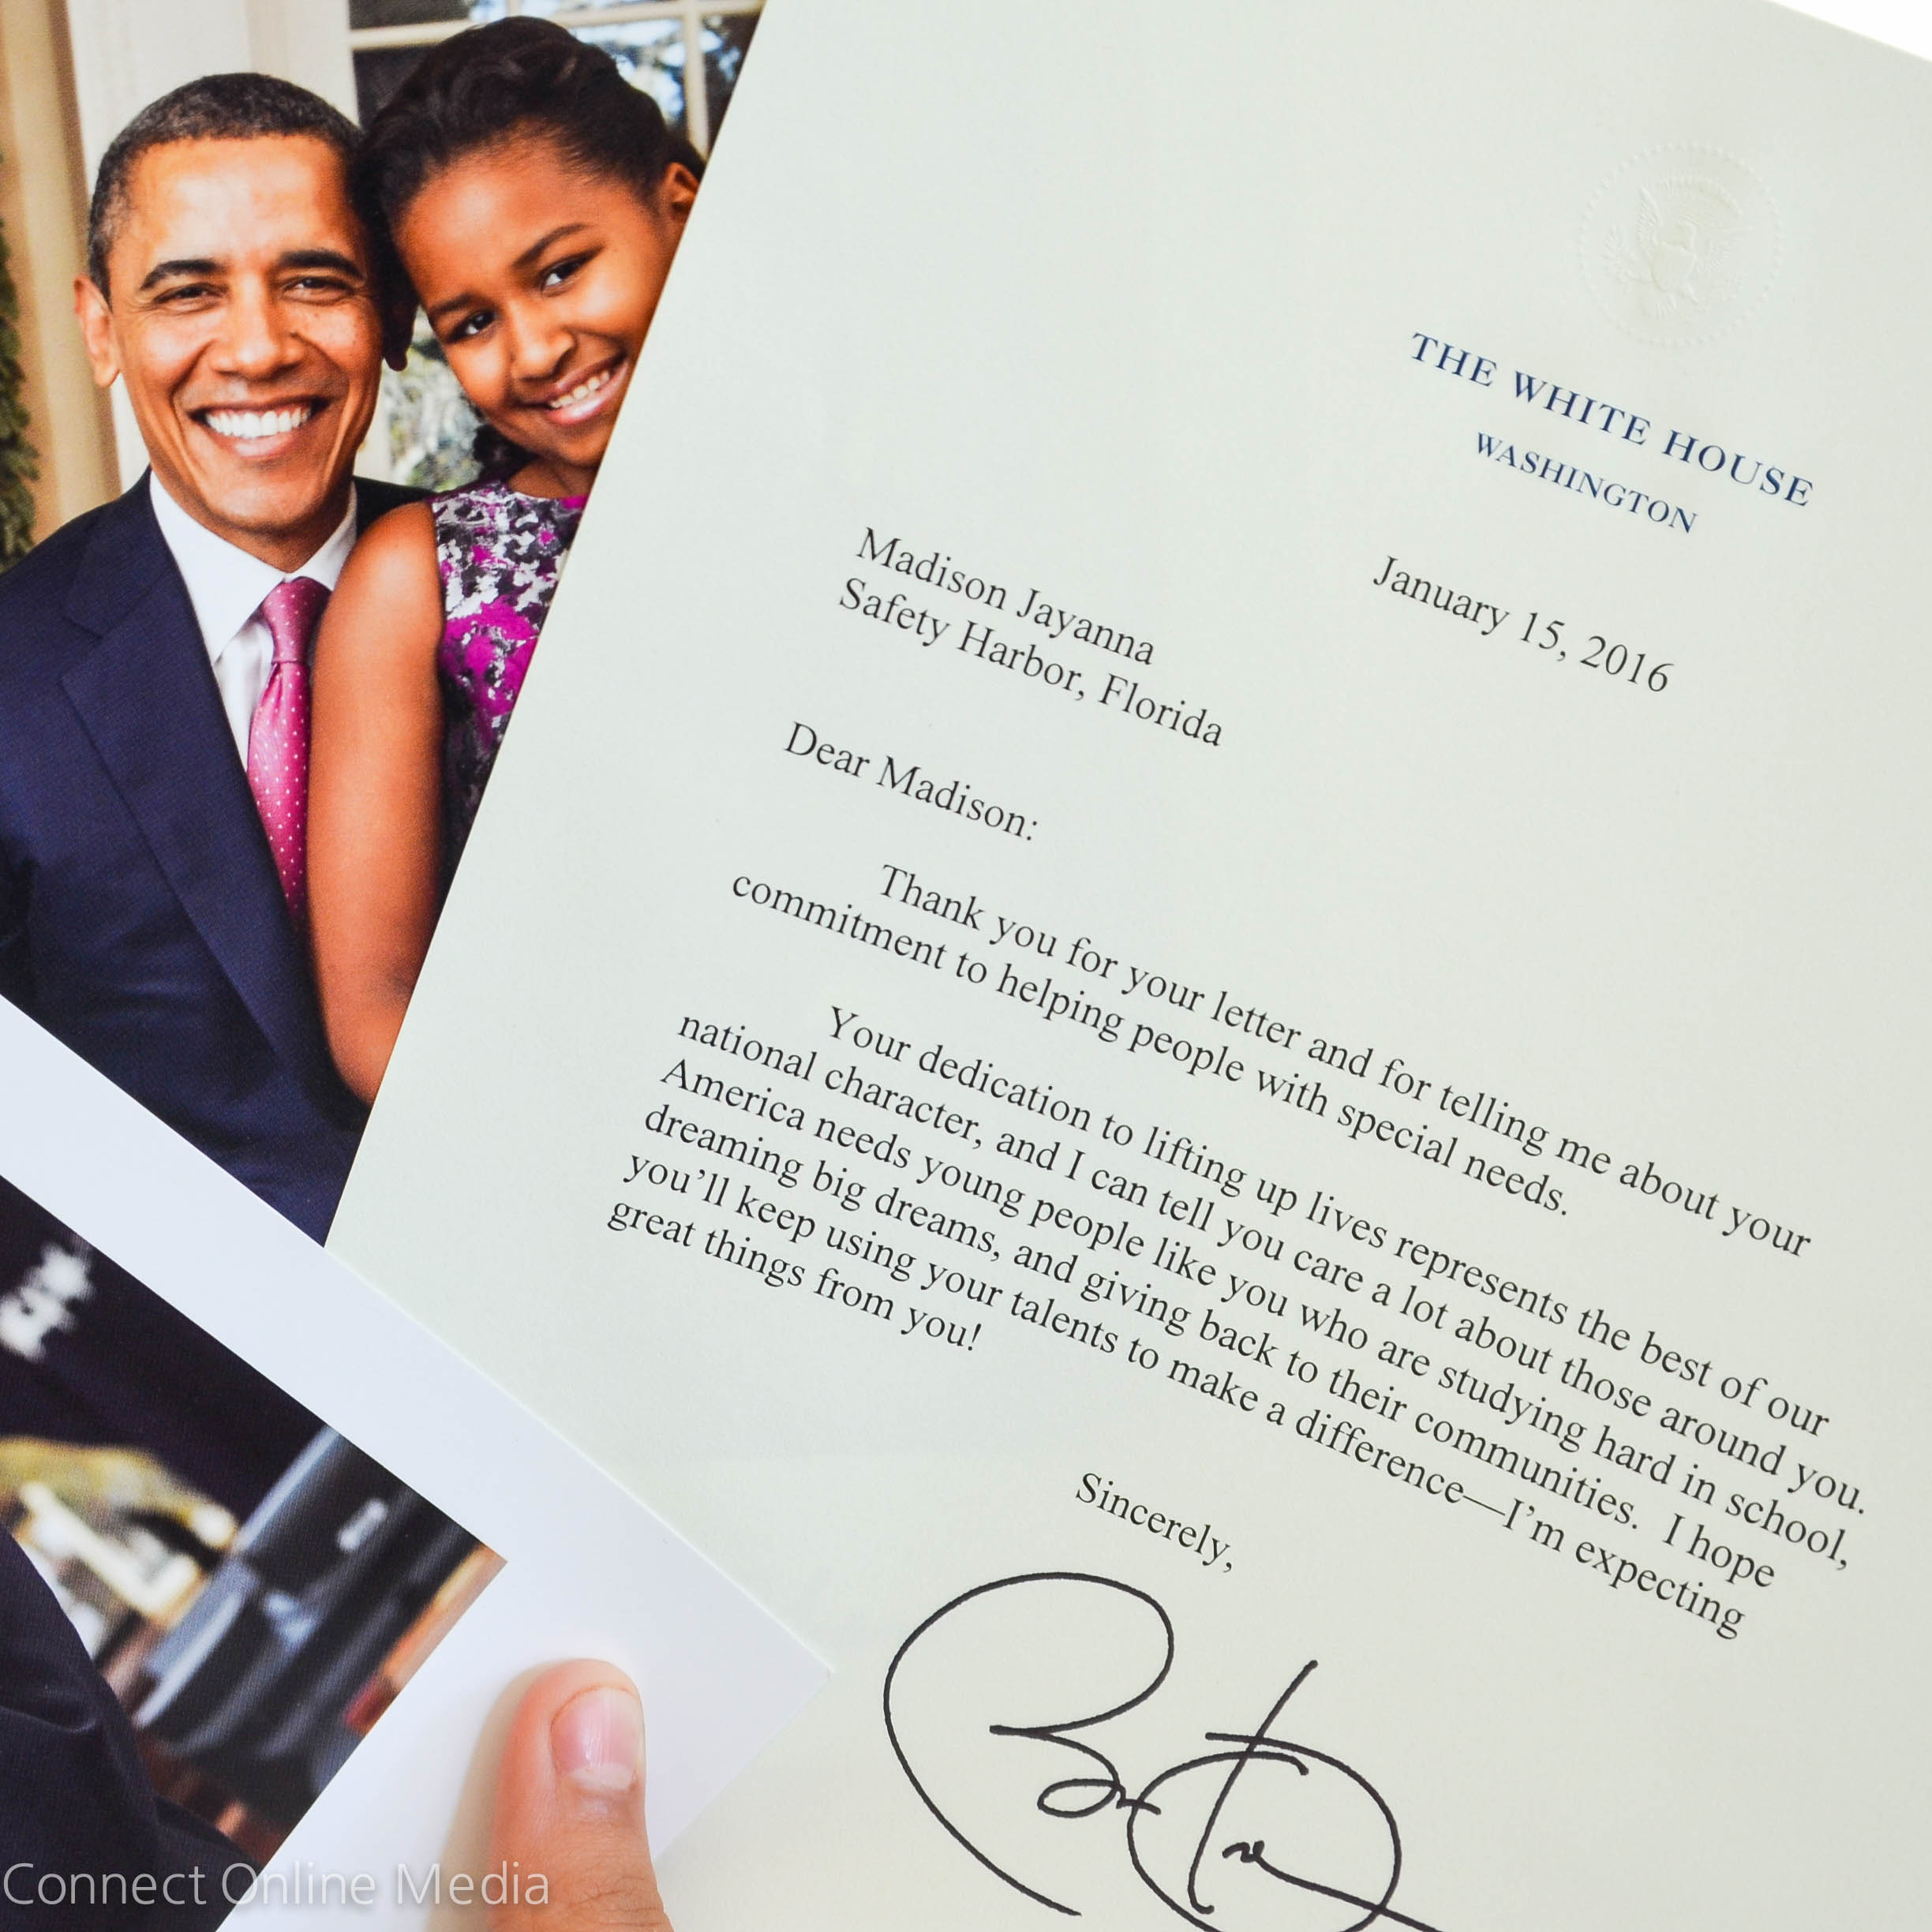 THE WHITE HOUSE
WASHINGTON
January 15, 2016
Madison Jayanna
Safety Harbor, Florida
Dear Madison:
Thank you for your letter and for telling me about your
commitment to helping people with special needs.
Your dedication to lifting up lives represents the best of our
national character, and I can tell you care a lot about those around you.
America needs young people like you who are studying hard in school,
dreaming big dreams, and giving back to their communities. I hope
you'll keep using your talents to make a difference—I'm expecting
great things from you!
Sincerely,
Connect Online Media